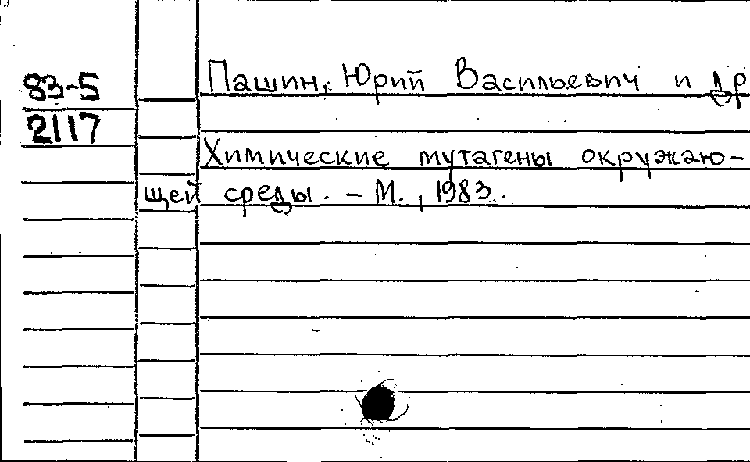 83-5 Пашин, Юрий Васильевич и др
2117
Химические мутагены окружаю-
щей среды. - М., 1983.